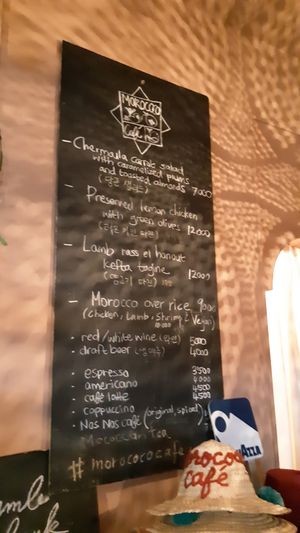 MOROCCO
Café
- Chermoula carrot salad
with caramelized plums
and toasted almonds 7000
(당근 샐러드)
- Preserved lemon chicken
with green olives 12000
- Lamb rass el hanout
kefta tagine 12000
- Morocco over rice 9000
(chicken, Lamb, Shrimp & Vegan)
10.000
· red/white wine (와인) 5000
· draft beer (생맥주) 4000
· espresso 3500
· americano 4000
· caffe latte 4500
· cappuccino 4500
· Nos Nos café (original, spiced)
Moroccan Tea
#morocococafe
Morococo
café